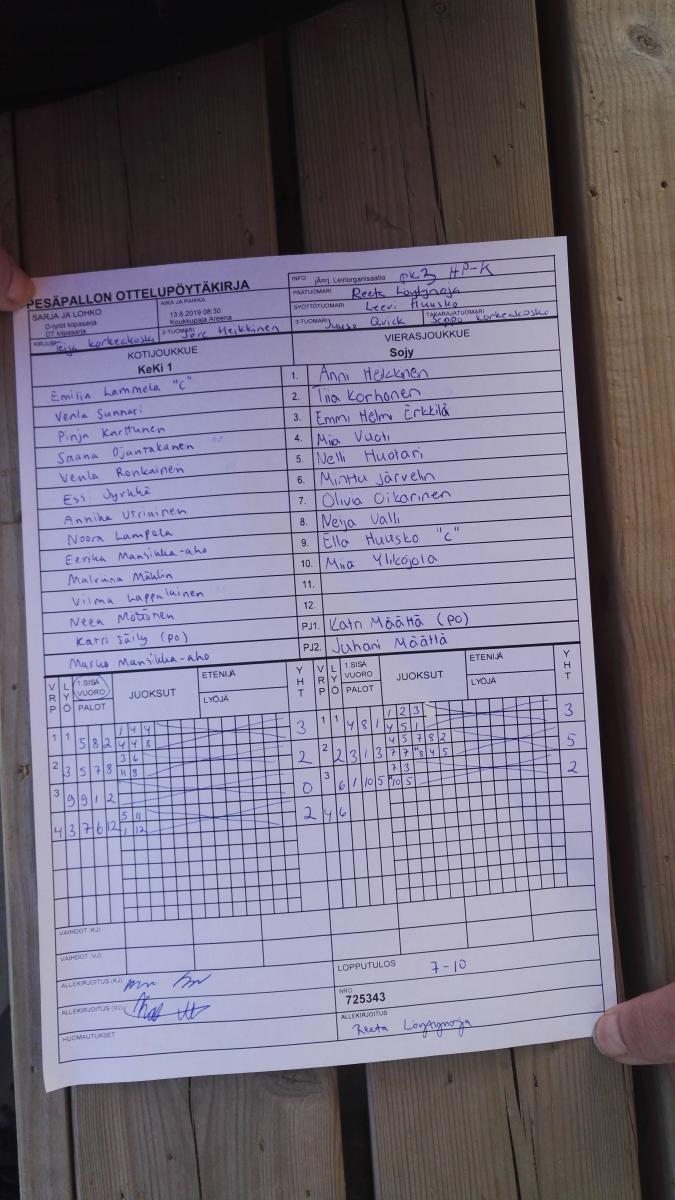 PESÄPALLON OTTELUPÖYTÄKIRJA
INFO jÄsrj. Leiriorganisaatio pk3 HP-K
SARJA JA LOHKO
D-tytöt kilpasarja
DT kilpasarja
AIKA JA PAIKKA
13.6.2019 08:30
Koukkupaja Areena
PÄÄTUOMARI Reeta Löytynoja
SYÖTTÖTUOMARI Leevi Huusko
KIRJURI Teija Korkeakoski
2-TUOMARI Jere Heikkinen
3-TUOMARI Juuso Qvick
TAKARAJATUOMARI Seppo Korkeakoski
KOTIJOUKKUE
KeKi 1
VIERASJOUKKUE
Sojy
Emilia Lammela "C" 1. Anni Heikkinen
Venla Sunnari 2. Tiia Korhonen
Pinja Karttunen 3. Emmi Helmi Erkkilä
Saana Ojantakanen 4. Miia Vuoti
Venla Ronkainen 5. Nelli Huotari
Essi Jyrkkä 6. Minttu Järvelin
Annika Utriainen 7. Olivia Oikarinen
Noora Lampela 8. Neija Valli
Eerika Mansikka-aho 9. Ella Huusko "C"
Malviina Mäählin 10. Miia Ylikojola
Vilma Lappalainen 11.
Neea Möttönen 12.
Katri Säily (PO) PJ1. Katri Määttä (PO)
Marko Mansikka-aho PJ2. Juhani Määttä
VRP LYÖ 1.SISÄ VUORO PALOT JUOKSUT ETENIJÄ LYÖJÄ YHT VRP LYÖ 1.SISÄ VUORO PALOT JUOKSUT ETENIJÄ LYÖJÄ YHT
1 4 4 1 2 3
1 1 5 8 2 4 4 8 3 1 1 4 8 1 4 5 1 3
3 6 4 5 7 8 2
2 3 5 7 8 11 8 2 2 2 3 1 3 7 7 8 4 5 5
7 3
3 9 9 1 2 0 3 6 1 10 5 10 5 2
5 11
4 3 7 6 12 1 12 2 4 6
VAIHDOT (KJ)
VAIHDOT (VJ)
ALLEKIRJOITUS (KJ)
LOPPUTULOS 7-10
ALLEKIRJOITUS (VJ)
NRO
725343
HUOMAUTUKSET
ALLEKIRJOITUS
Reeta Löytynoja